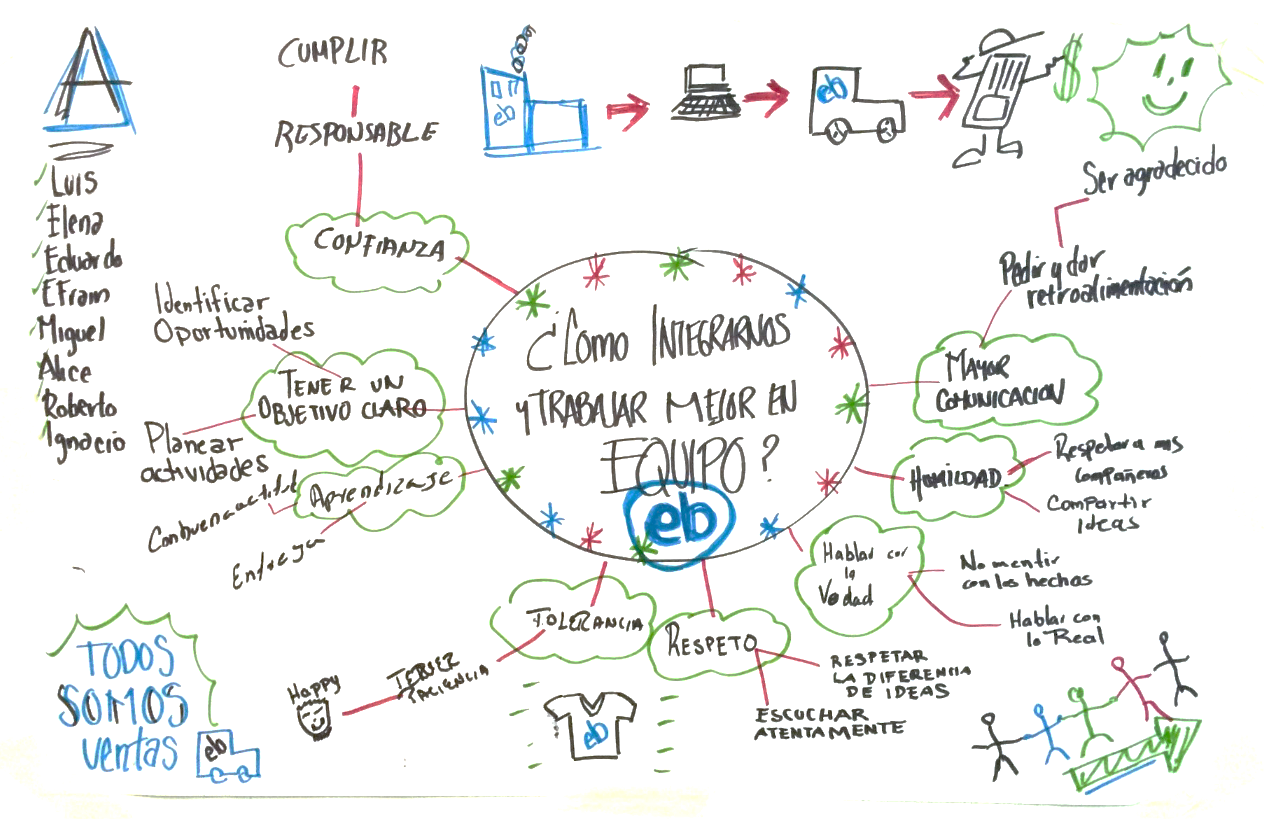 A
Luis
Elena
Eduardo
EFram
Miguel
Alice
Roberto
Ignacio
CUMPLIR
RESPONSABLE
CONFIANZA
eb
eb
$
Ser agradecido
Pedir y dar
retroalimentación
MAYOR
COMUNICACION
Identificar
Oportunidades
TENER UN
OBJETIVO CLARO
Planear
actividades
Aprendizaje
Con buena actitud
Entrega
¿Como INTEGRARNOS
y TRABAJAR MEJOR EN
EQUIPO?
eb
HUMILDAD
Respetar a mis
compañeros
Compartir
ideas
Hablar con
la
Verdad
No mentir
con los hechos
Hablar con
lo Real
TOLERANCIA
TENER
PACIENCIA
Happy
RESPETO
RESPETAR
LA DIFERENCIA
DE IDEAS
ESCUCHAR
ATENTAMENTE
eb
TODOS
SOMOS
Ventas
eb